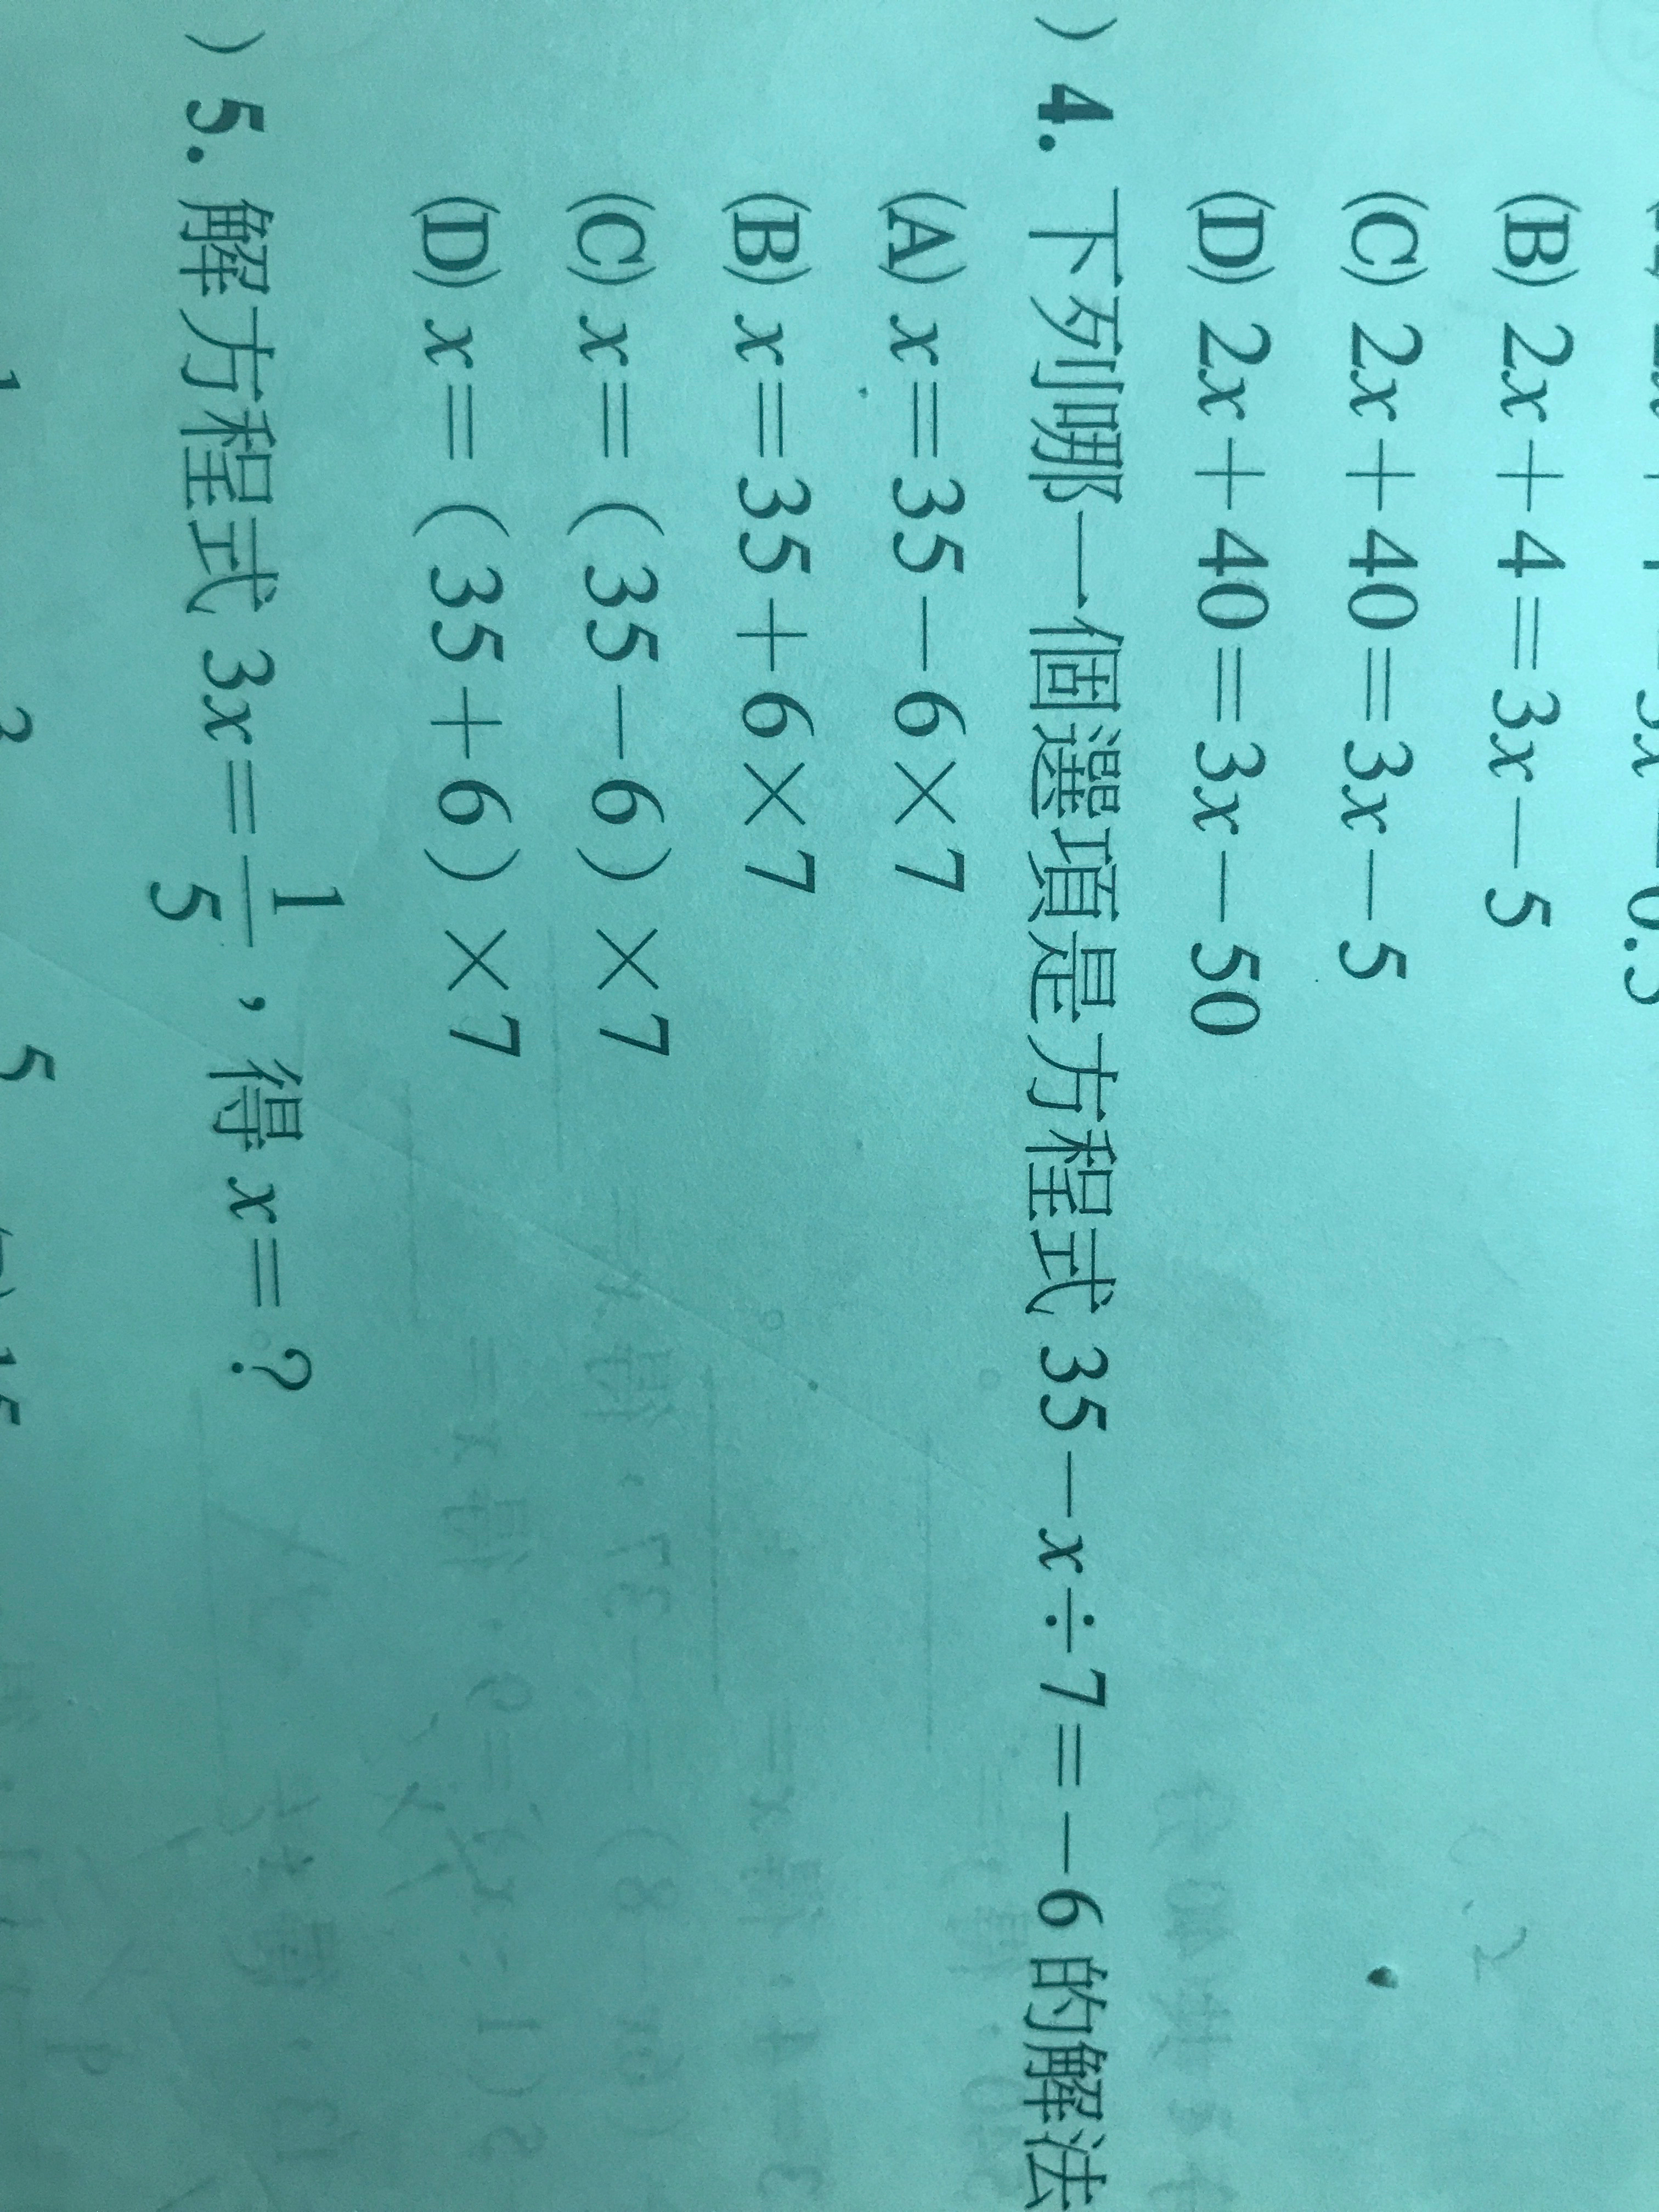 (B) 2x＋4＝3x－5
(C) 2x＋40＝3x－5
(D) 2x＋40＝3x－50
）4. 下列哪一個選項是方程式 35－x÷7＝－6 的解法
(A) x＝35－6×7
(B) x＝35＋6×7
(C) x＝（35－6）×7
(D) x＝（35＋6）×7
）5. 解方程式 3x＝1/5，得 x＝？